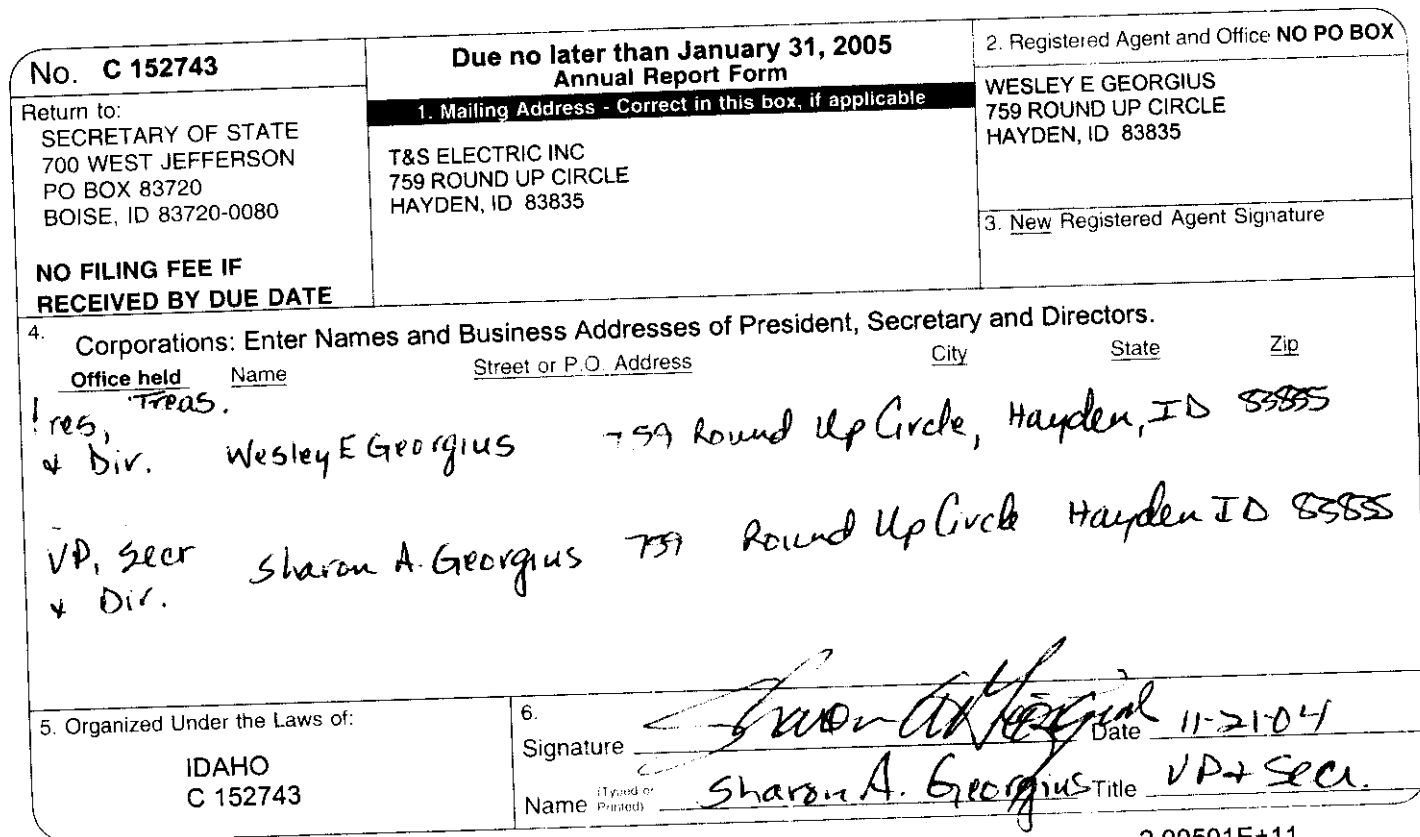 No. C 152743
Return to:
SECRETARY OF STATE
700 WEST JEFFERSON
PO BOX 83720
BOISE, ID 83720-0080
NO FILING FEE IF
RECEIVED BY DUE DATE
Due no later than January 31, 2005
Annual Report Form
1. Mailing Address - Correct in this box, if applicable
T&S ELECTRIC INC
759 ROUND UP CIRCLE
HAYDEN, ID 83835
2. Registered Agent and Office NO PO BOX
WESLEY E GEORGIUS
759 ROUND UP CIRCLE
HAYDEN, ID 83835
3. New Registered Agent Signature
4. Corporations: Enter Names and Business Addresses of President, Secretary and Directors.
Office held Name Street or P.O. Address City State Zip
Treas.
Pres,
+ Dir. Wesley E Georgius 759 Round Up Circle, Hayden, ID 83835
VP, Secr Sharon A. Georgius 759 Round Up Circle Hayden ID 83835
+ Dir.
5. Organized Under the Laws of:
IDAHO
C 152743
6.
Signature Sharon A Georgius Date 11-21-04
Name (Typed or Printed) Sharon A. Georgius Title VP + Secr.
2.00501E+11